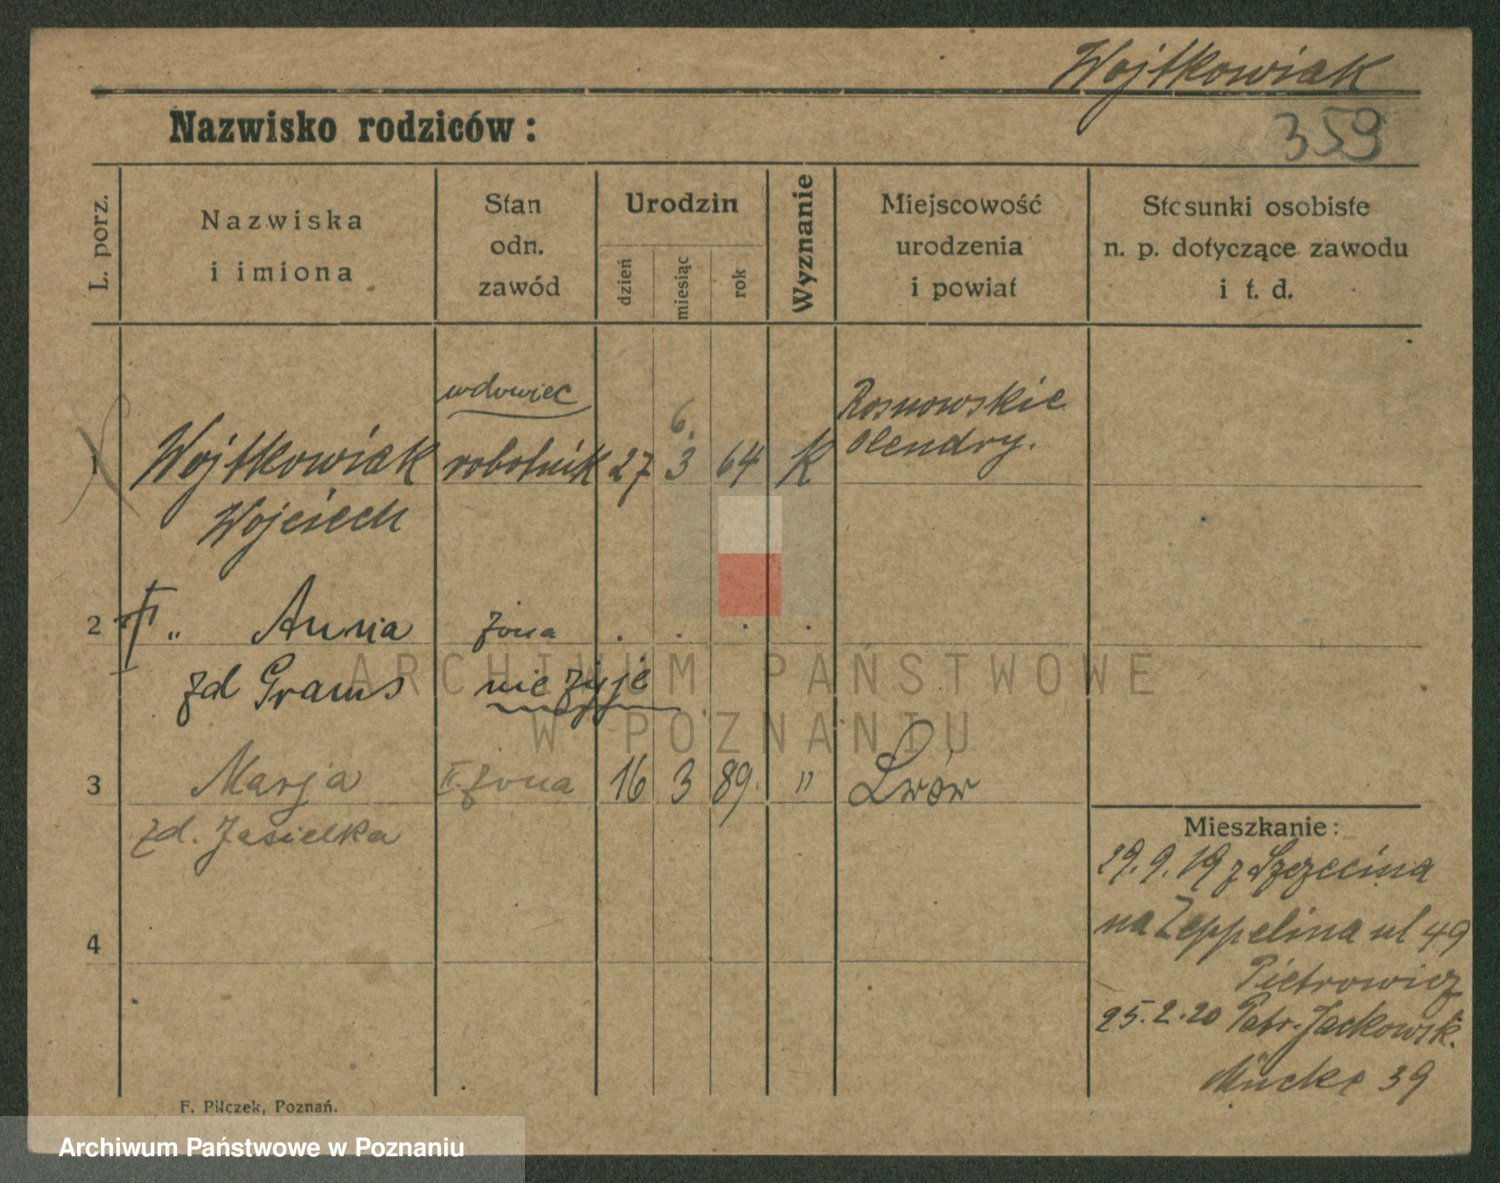 Wojtkowiak
Nazwisko rodziców:
359
L. porz.
Nazwiska
i imiona
Stan
odn.
zawód
Urodzin
dzień
miesiąc
rok
Wyznanie
Miejscowość
urodzenia
i powiat
Stosunki osobiste
n. p. dotyczące zawodu
i t. d.
wdowiec
6.
Rosnowskie
1 Wojtkowiak robotnik 27 3 64 K Olendry.
Wojciech
2 II „ Anna żona . . . .
zd Grams nie żyje
ARCHIWUM PAŃSTWOWE
W POZNANIU
3 Marja II żona 16 3 89. " Lwów
zd. Jasielka
Mieszkanie:
29.9.19 z Szczecina
na Zeppelina ul 49
Pietrowicz
25.2.20 Patr. Jackowsk.
Mücke 39
4
F. Pilczek, Poznań.
Archiwum Państwowe w Poznaniu